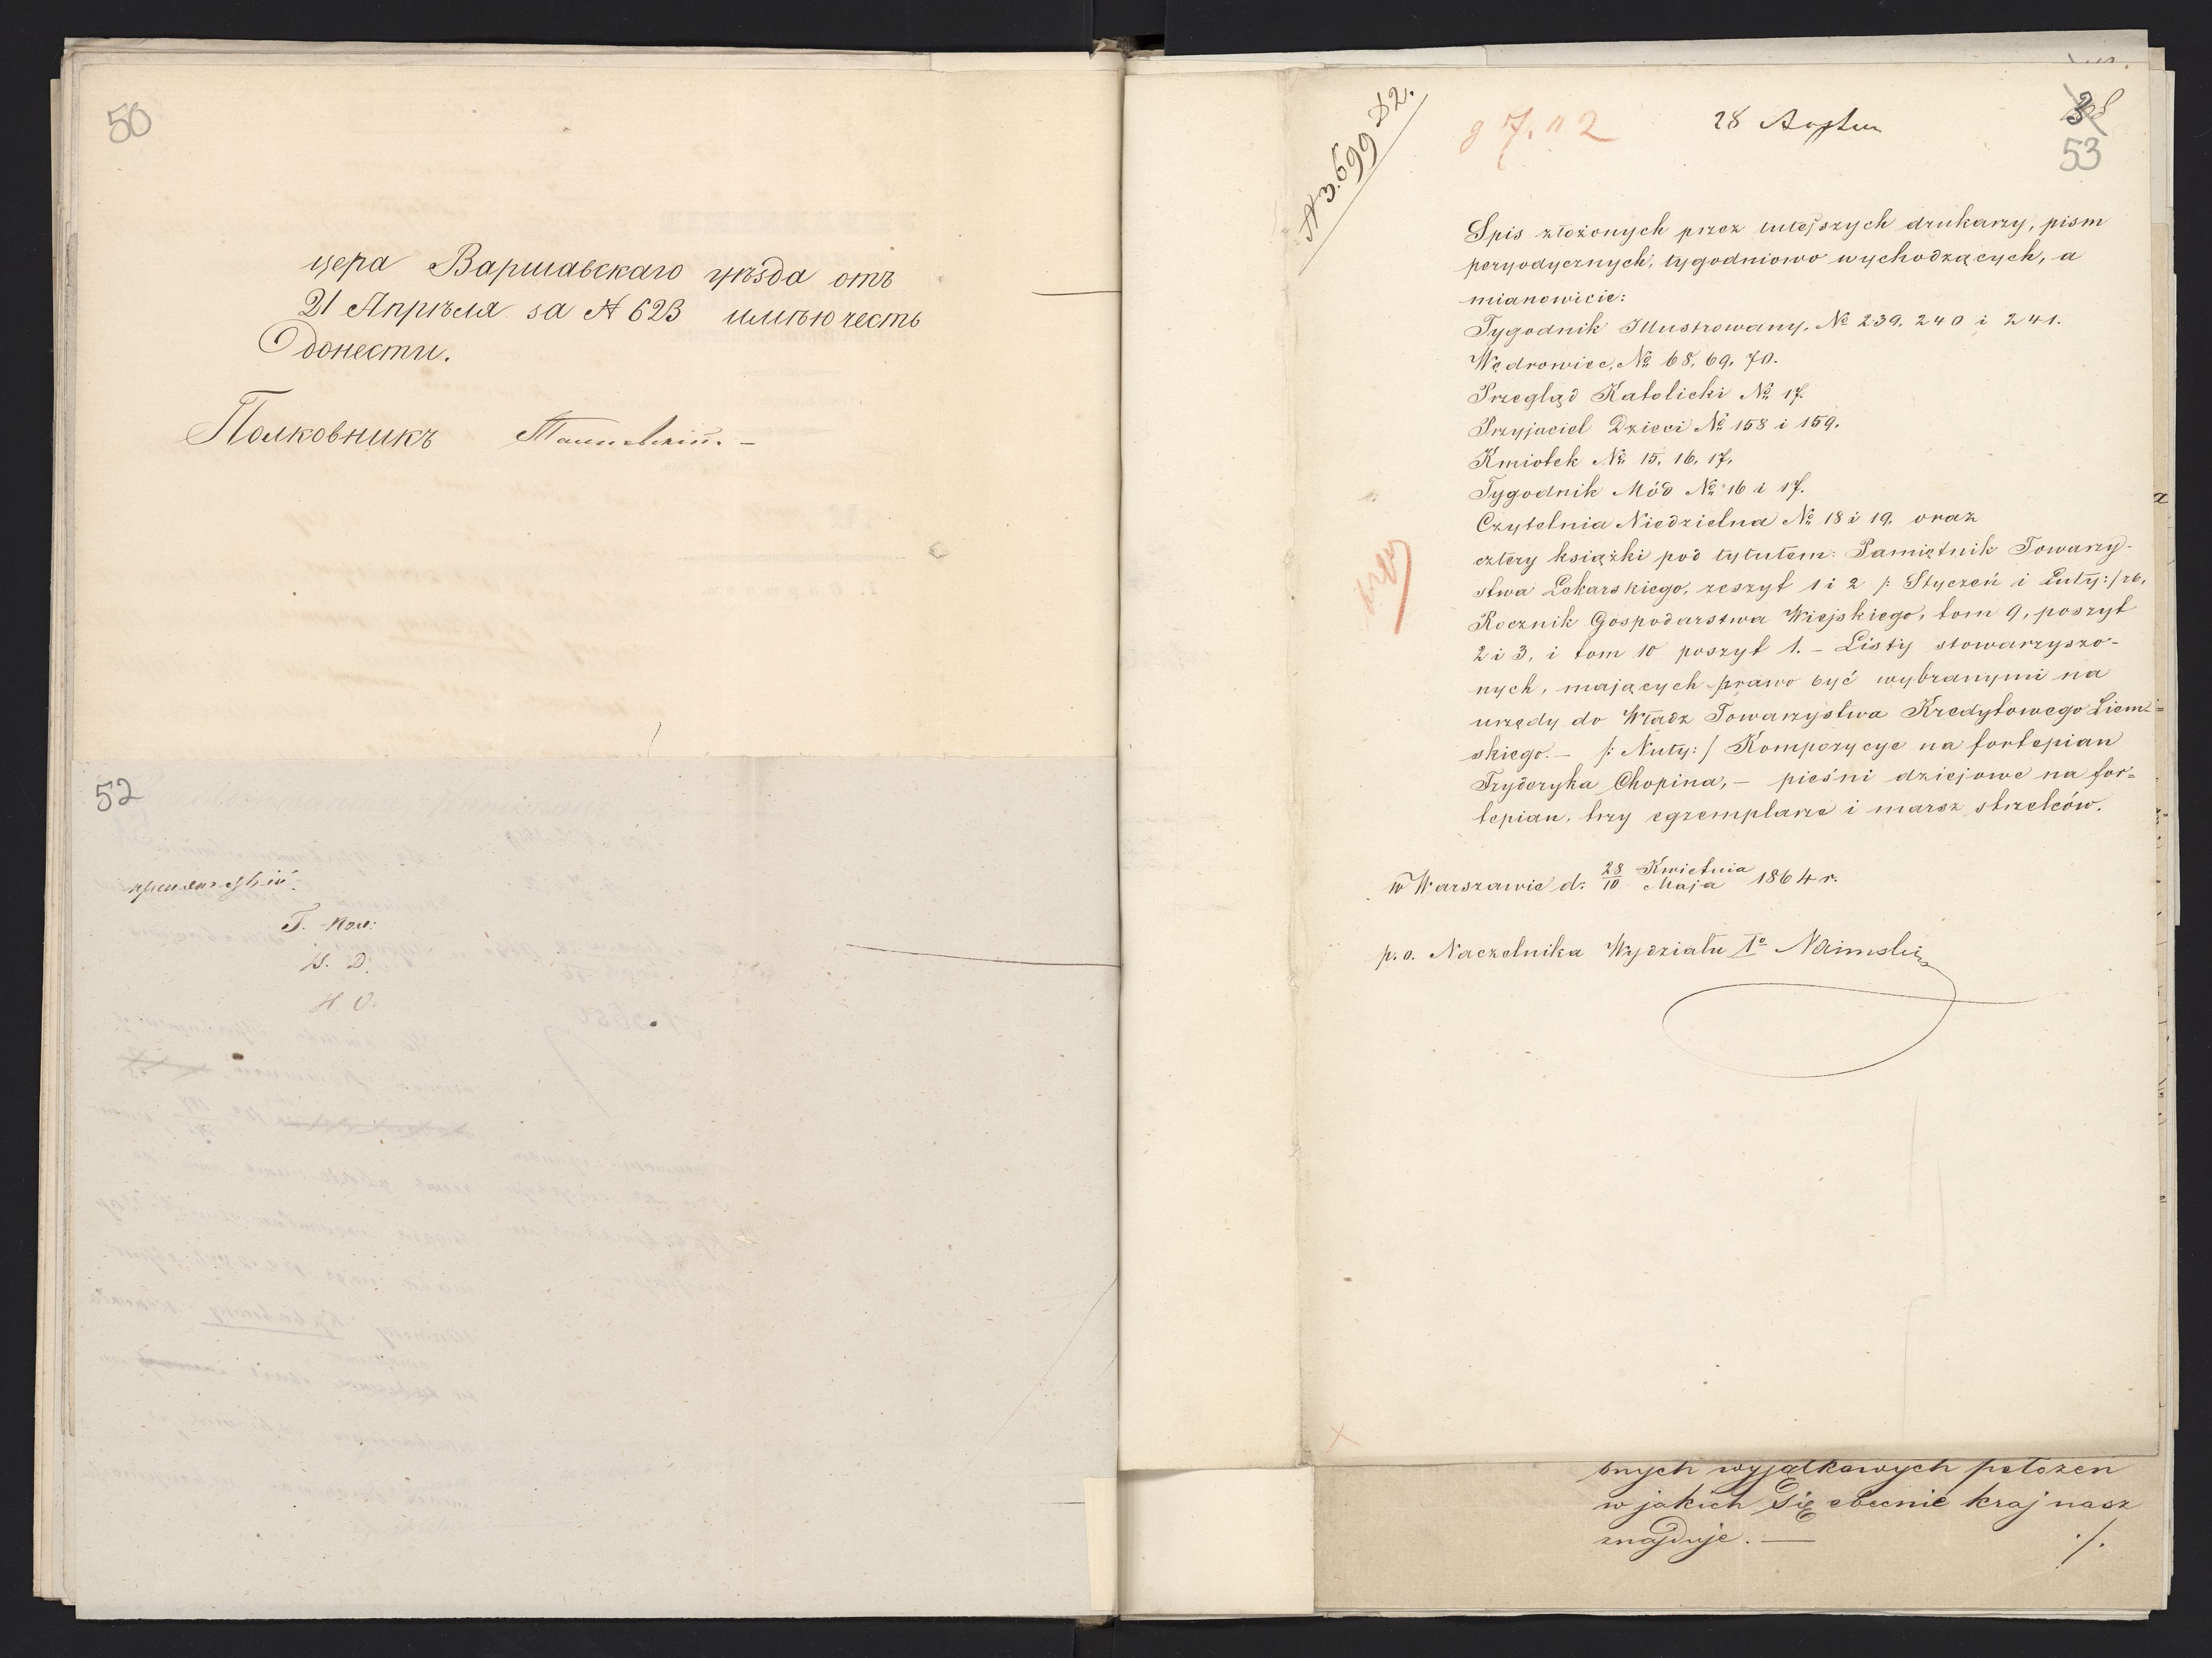 50
цера Варшавскаго уѣзда отъ
21 Апрѣля за № 623 имѣю честь
донести.
Полковникъ
52
Г.
Н. О.
N 3.699 D2.
28
53
Spis złożonych przez tutejszych drukarzy, pism
peryodycznych, tygodniowo wychodzących, a
mianowicie:
Tygodnik Illustrowany, № 239, 240 i 241.
Wędrowiec, № 68, 69, 70.
Przegląd Katolicki № 17.
Przyjaciel Dzieci № 158 i 159.
Kmiotek № 15, 16, 17.
Tygodnik Mód № 16 i 17.
Czytelnia Niedzielna № 18 i 19, oraz
cztery książki pod tytułem: Pamiętnik Towarzy-
stwa Lekarskiego, zeszyt 1 i 2 /: Styczeń i Luty :/ rb,
Rocznik Gospodarstwa Wiejskiego, tom 9, poszyt
2 i 3, i tom 10 poszyt 1. – Listy stowarzyszo-
nych, mających prawo być wybranymi na
urzędy do Władz Towarzystwa Kredytowego Ziem-
skiego. – /: Nuty :/ Kompozycye na fortepian
Fryderyka Chopina, – pieśni dziejowe na for=
tepian, trzy egzemplarze i marsz strzelców.
w Warszawie d. 28 Kwietnia / 10 Maja 1864 r.
p. o. Naczelnika Wydziału I°
bnych wyjątkowych położeń
w jakich się obecnie kraj nasz
znajduje. — ./.